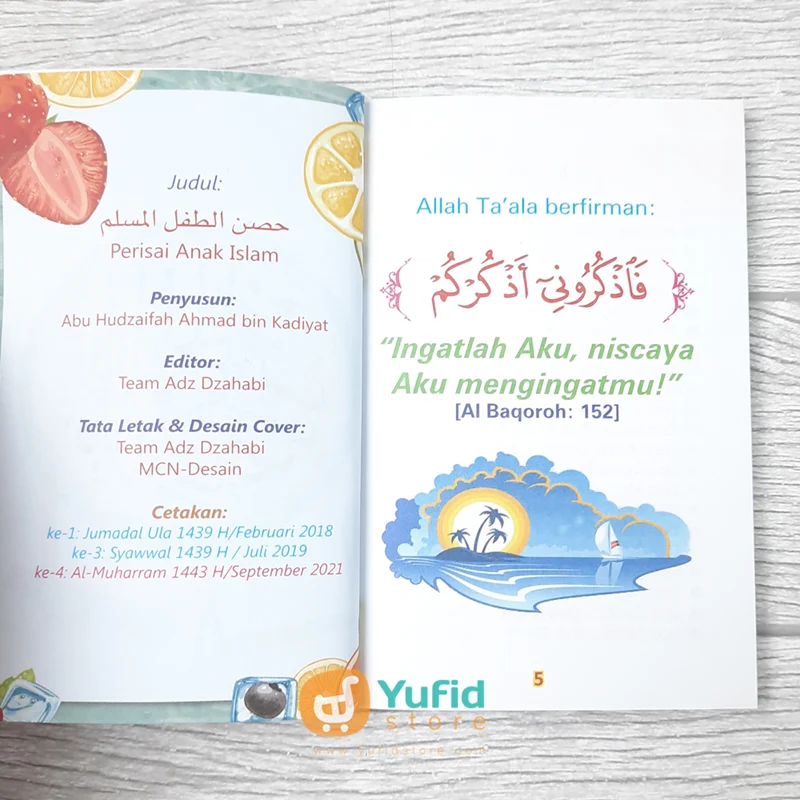 Judul:
حصن الطفل المسلم
Perisai Anak Islam
Penyusun:
Abu Hudzaifah Ahmad bin Kadiyat
Editor:
Team Adz Dzahabi
Tata Letak & Desain Cover:
Team Adz Dzahabi
MCN-Desain
Cetakan:
ke-1: Jumadal Ula 1439 H/Februari 2018
ke-3: Syawwal 1439 H / Juli 2019
ke-4: Al-Muharram 1443 H/September 2021
Allah Ta'ala berfirman:
فَٱذْكُرُونِىٓ أَذْكُرْكُمْ
"Ingatlah Aku, niscaya
Aku mengingatmu!"
[Al Baqoroh: 152]
5
Yufid
store
www.yufidstore.com